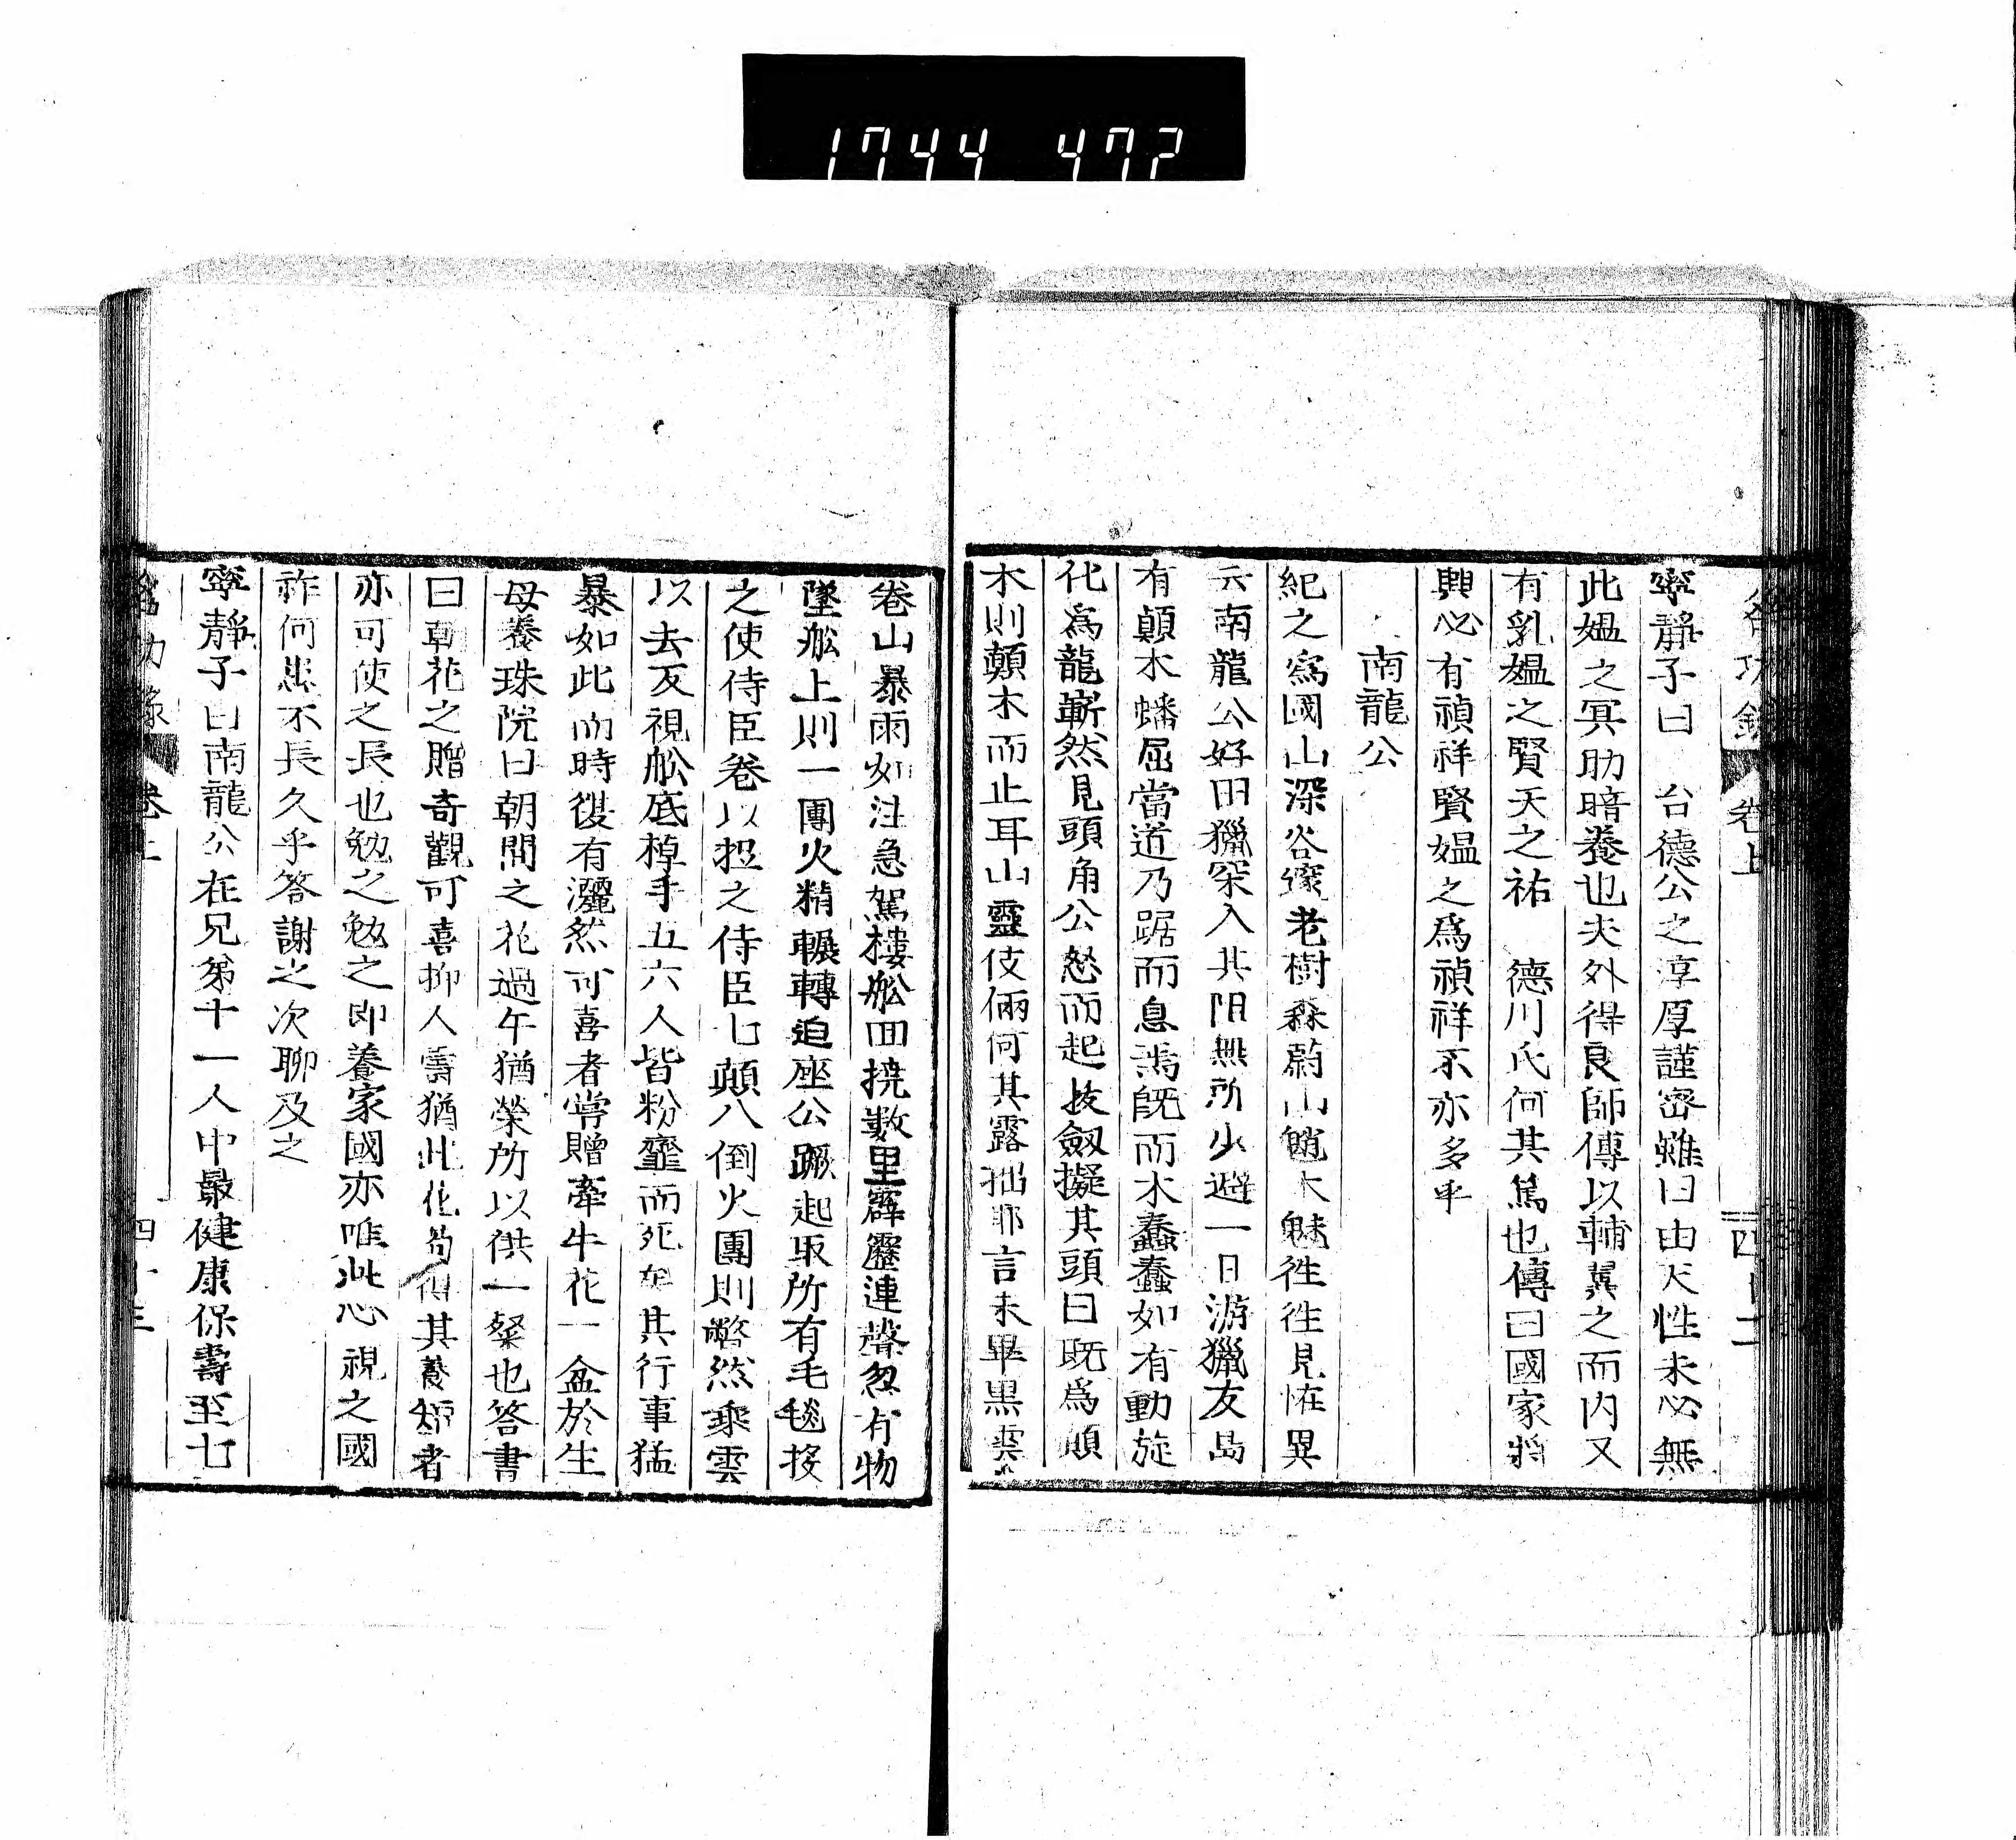 1744 472
卷上
寧靜子曰 台德公之淳厚謹密雖曰由天性未必無
此媼之冥助暗養也夫外得良師傅以輔冀之而内又
有乳媼之賢天之祐 德川氏何其篤也傳曰國家將
興必有禎祥賢媼之爲禎祥不亦多乎
南龍公
紀之爲國山深谷邃老樹森蔚山魈木魅往往見恠異
云南龍公好田獵深入其阻無所少避一日游獵友島
有顛木蟠屈當道乃踞而息焉旣而木蠢蠢如有動旋
化爲龍嶄然見頭角公怒而起拔劔擬其頭曰既爲顛
木則顛木而止耳山靈伎倆何其露拙耶言未畢黒雲
卷山暴雨如注急駕樓舩囬撓數里霹靂連聲忽有物
墜舩上則一團火精輾轉迫座公蹶起取所有毛毯授
之使侍臣卷以投之侍臣七顛八倒火團則瞥然乘雲
以去反視舩底棹手五六人皆粉韲而死矣其行事猛
暴如此而時復有灑然可喜者嘗贈牽牛花一盆於生
母養珠院曰朝開之花過午猶榮所以供一粲也答書
曰朝花之贈奇觀可喜抑人壽猶此花苟得其養短者
亦可使之長也勉之勉之即養家國亦唯此心視之國
祚何患不長久乎答謝之次聊及之
寧靜子曰南龍公在兄弟十一人中最健康保壽至七
卷上